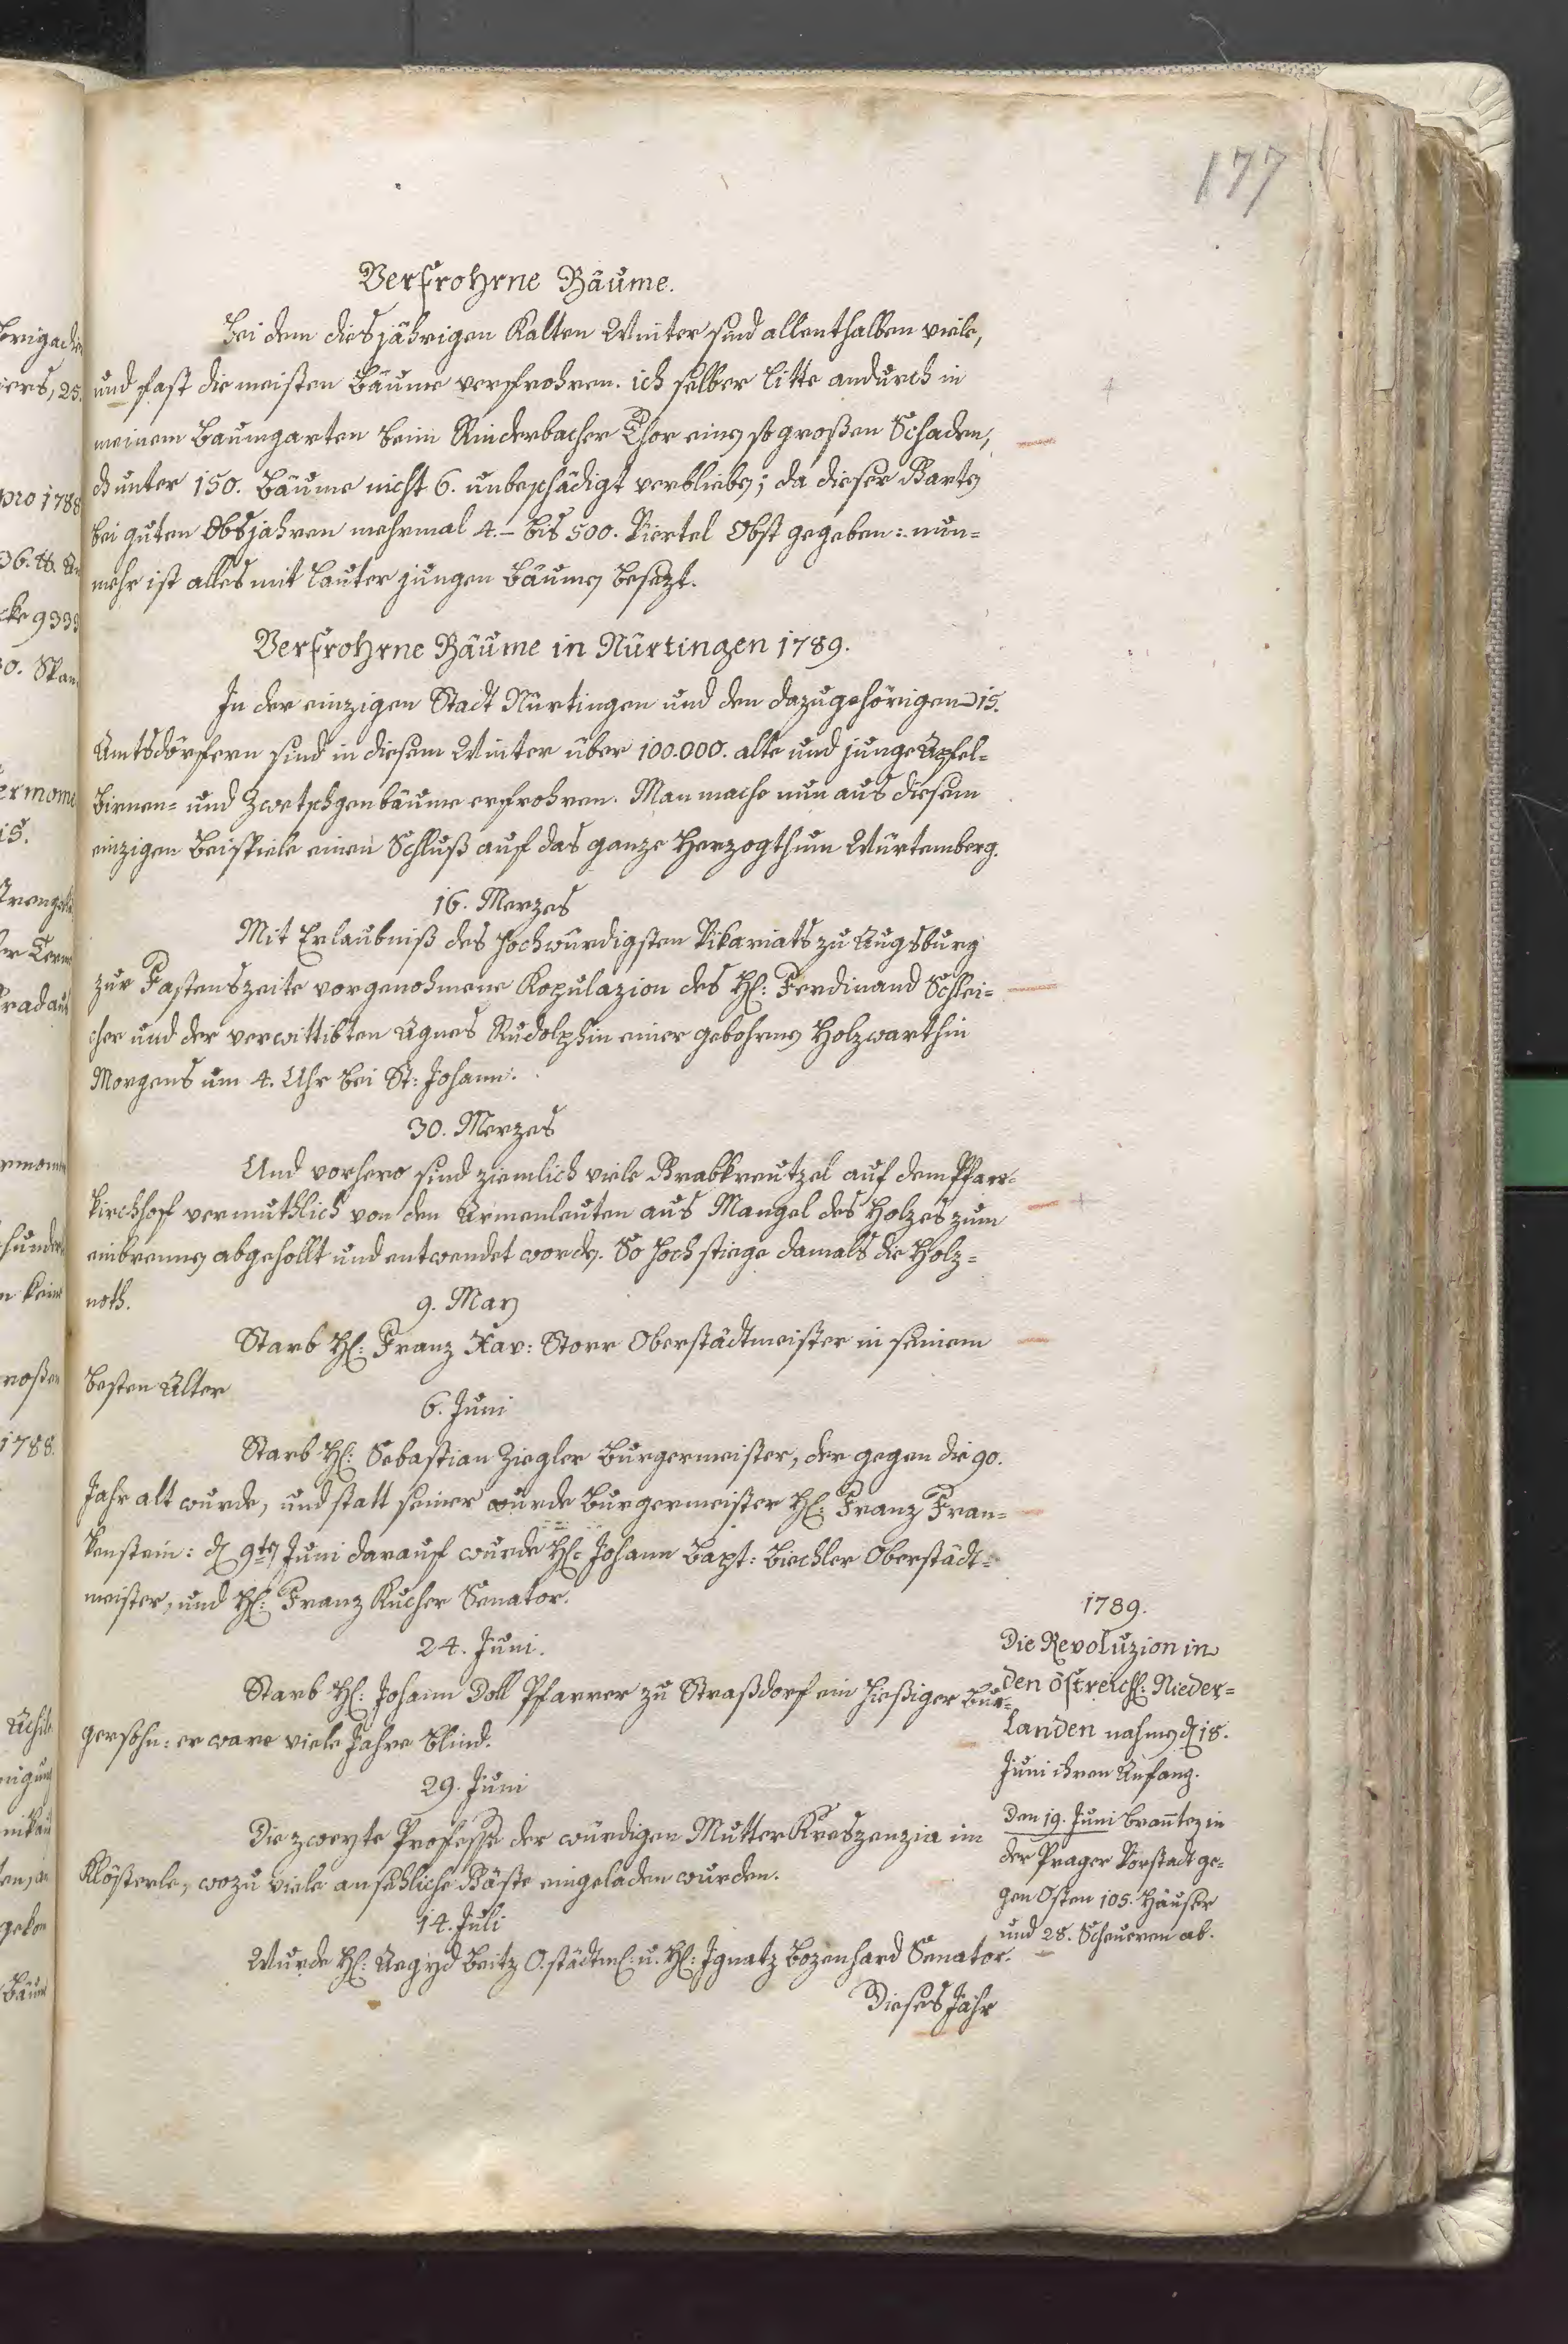 177
Verfrohrne Bäume.
Bei dem diesjährigen Kalten Winter sind allenthalben viele,
und fast die meisten Bäume verfrohren. ich selber litte andurch in
meinem Baumgarten beim Rinderbacher Thor einen so großen Schaden,
daß unter 150. Bäume nicht 6. unbeschädigt verblieben; da dieser Garten
bei guten Obsjahren mehrmal 4.– bis 500. Viertel Obst gegeben: nun=
mehr ist alles mit lauter jungen Bäumen besezt.
Verfrohrne Bäume in Nürtingen 1789.
In der einzigen Stadt Nürtingen und den dazugehörigen 15.
Amtsdörfern sind in diesem Winter über 100.000. alte und junge Apfel=
Birnen= und Zwetschgenbäume erfrohren. Man mache nun aus diesem
einzigen Beispiele einen Schluß auf das ganze Herzogthum Würtemberg.
16. Merzes
Mit Erlaubniß des Hochwürdigsten Vikariats zu Augsburg
zur Fastenszeite vorgenohmene Kopulazion des H: Ferdinand Schlei=
cher und der verwittibten Agnes Rudolphin einer gebohrnen Holzwarthin
Morgens um 4. Uhr bei St: Johann.
30. Merzes
Und vorhero sind ziemlich viele Grabkreutzel auf dem Pfarr=
kirchhof vermuthlich von den Armenleuten aus Mangel des Holzes zum
einbrennen abgehollt und entwendet worden. So hoch stiege damals die Holz=
noth.
9. May
Starb H: Franz Xav: Storr Oberstädtmeister in seinem
besten Alter
6. Juni
Starb H: Sebastian Ziegler Burgermeister, der gegen die 90.
Jahr alt wurde, und statt seiner wurde Burgermeister H: Franz Fran=
kenstein: den 9ten Juni darauf wurde H: Johann Bapt: Biechler Oberstädt=
meister, und H: Franz Kucher Senator.
24. Juni.
Starb H: Johann Doll Pfarrer zu Straßdorf ein hießiger Bur=
gersohn: er ware viele Jahre blind.
29. Juni
Die zweyte Professe der würdigen Mutter Kreszenzia im
Klösterle, wozu viele ansehliche Gäste eingeladen wurden.
14. Juli
Wurde H: Aegyd Beitz O.städtm: u. H: Ignatz Bozenhard Senator.
Dieses Jahr
1789.
Die Revoluzion in
den östreich: Nieder=
landen nahme den 18.
Juni ihren Anfang.
Den 19. Juni branten in
der Prager Vorstadt ge=
gen Osten 105. Häuser
und 28. Scheueren ab.